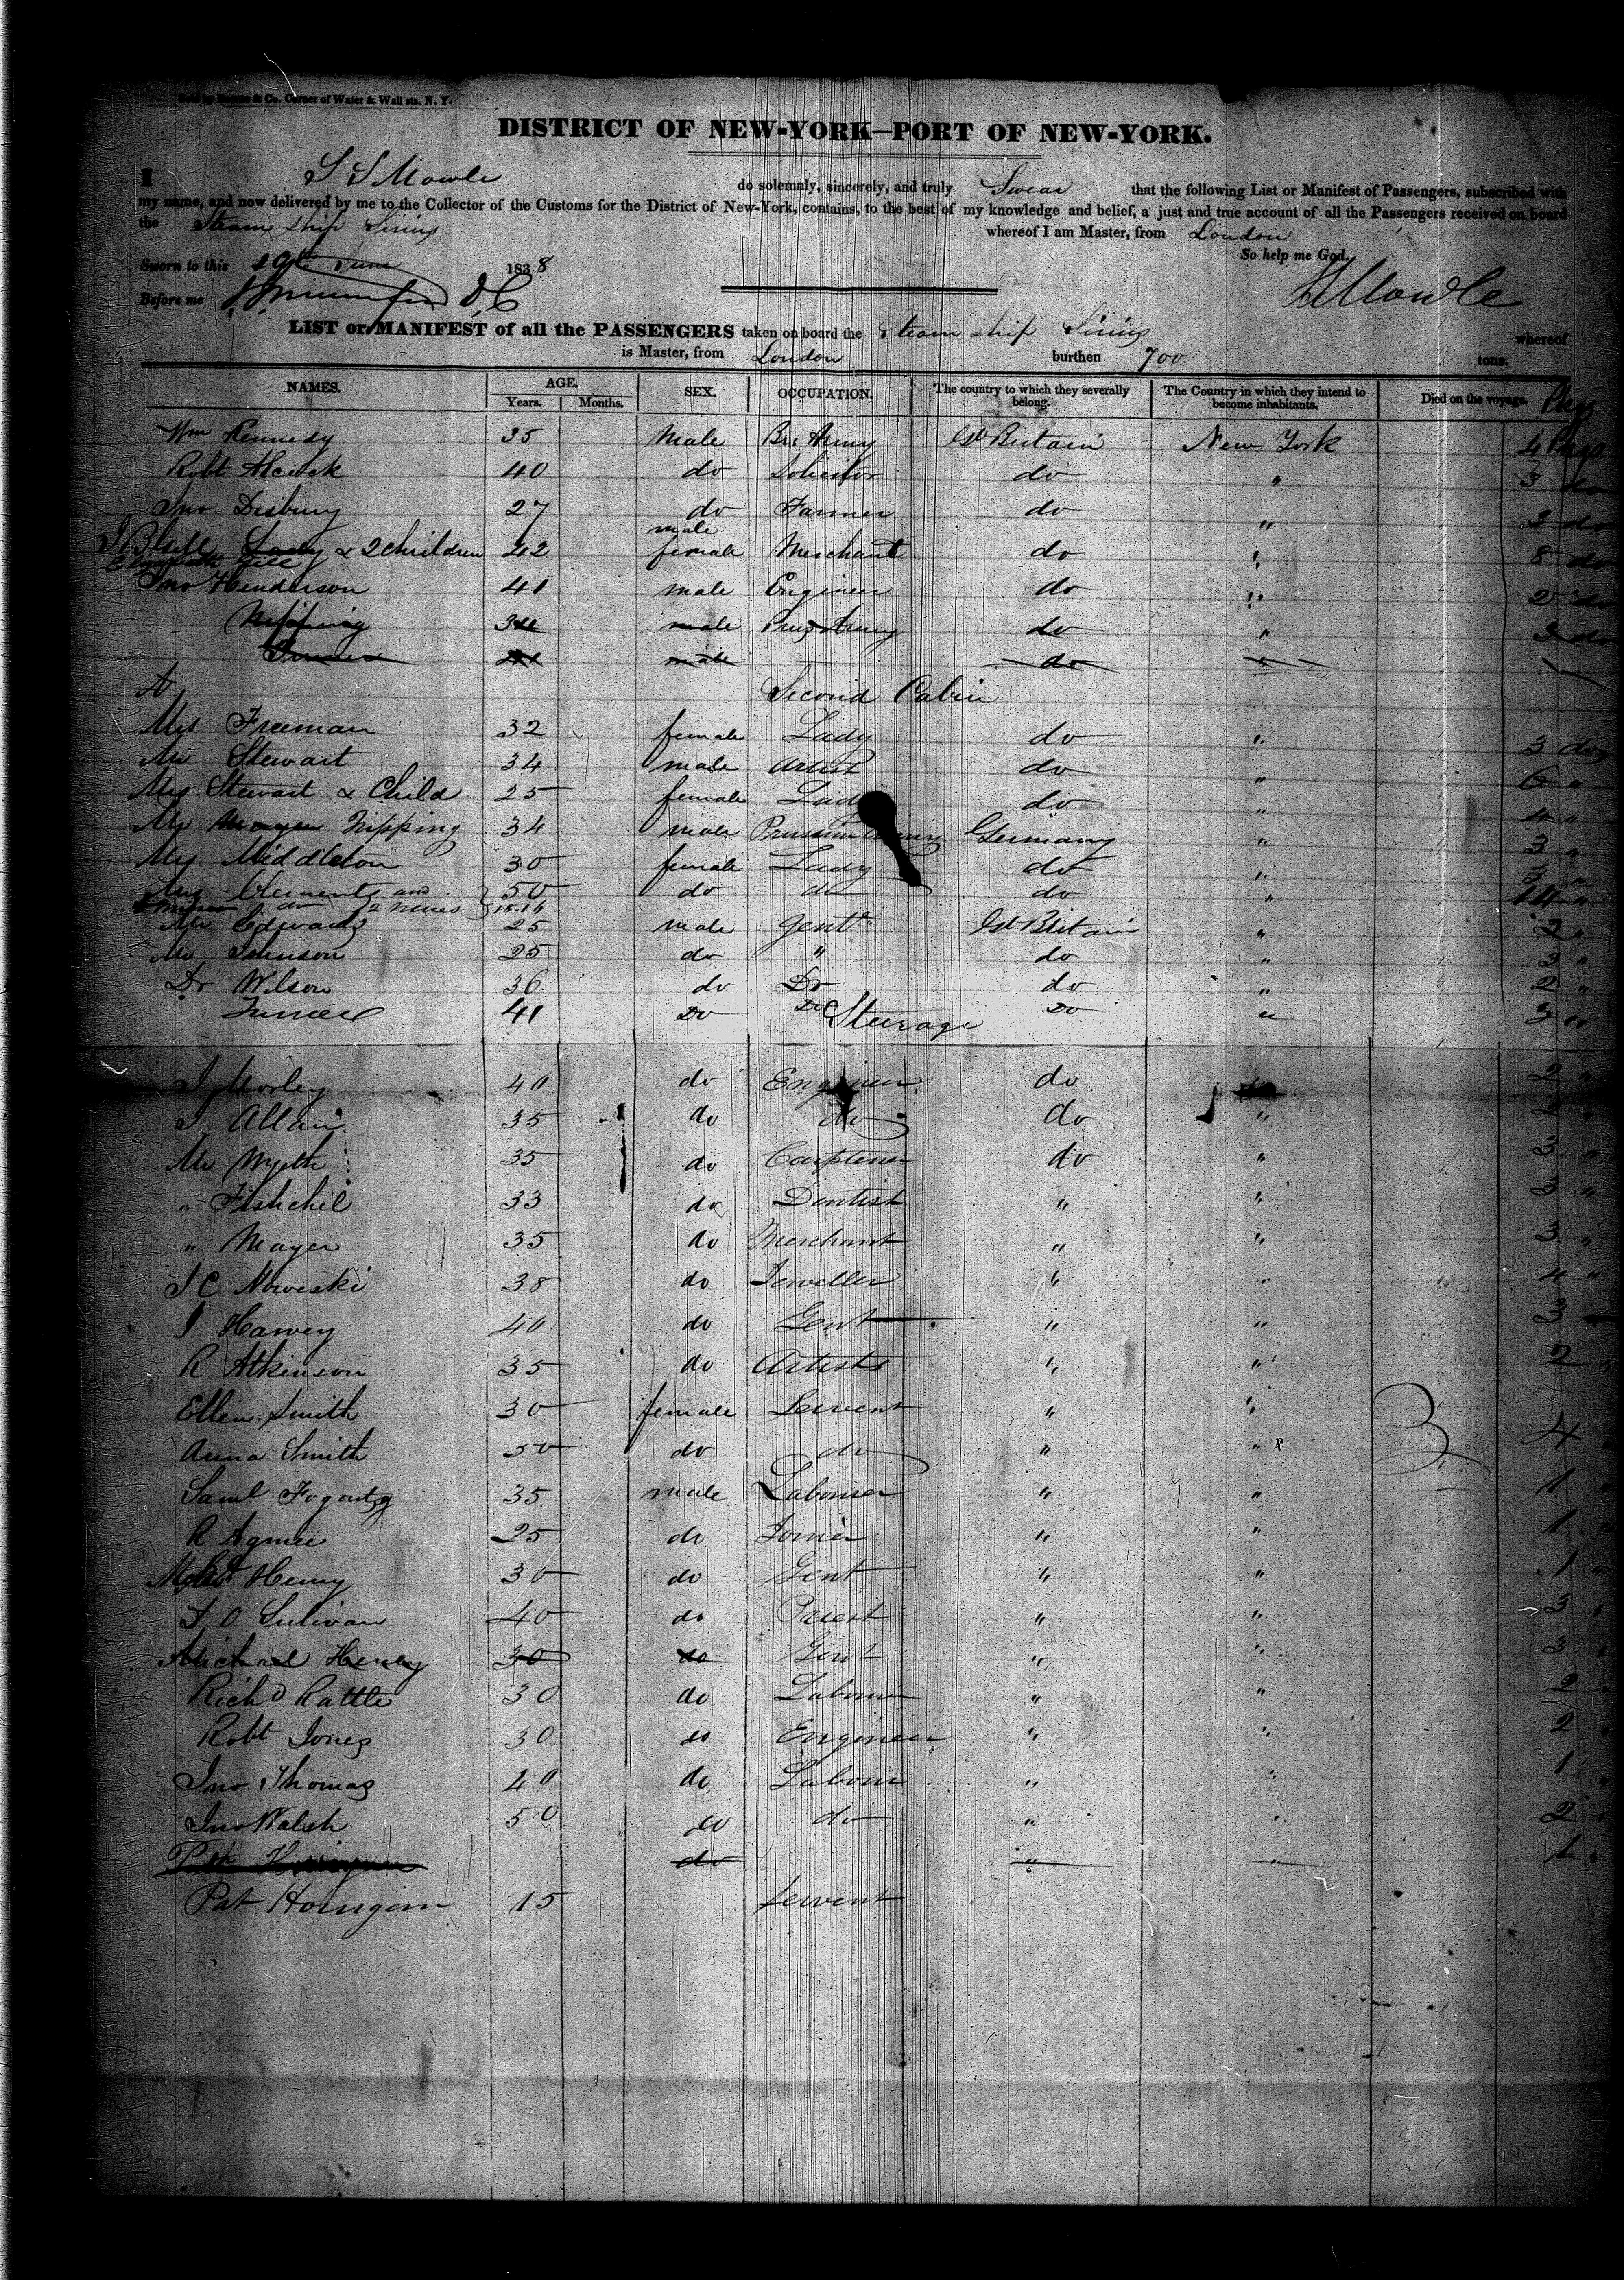 Co. Corner of Water & Wall sts. N. Y.
DISTRICT OF NEW-YORK—PORT OF NEW-YORK.
I S S Mowle do solemnly, sincerely, and truly Swear that the following List or Manifest of Passengers, subscribed with
my name, and now delivered by me to the Collector of the Customs for the District of New-York, contains, to the best of my knowledge and belief, a just and true account of all the Passengers received on board
the Steam ship Sirius whereof I am Master, from London
So help me God.
Sworn to this June 1838
Before me D. C Mowle
LIST or MANIFEST of all the PASSENGERS taken on board the Steam ship Sirius whereof
is Master, from London burthen 700 tons.
NAMES. AGE. SEX. OCCUPATION. The country to which they severally belong. The Country in which they intend to become inhabitants. Died on the voyage. Pkgs
Years. Months.
Wm Kennedy 35 Male Br. Army Gt Britain New York 4 Pkgs
Robt Alcock 40 do Solicitor do " 3 do
Jno Disbury 27 do Farmer do " 3 do
male
Lady & 2 children 42 female Merchant do " 8 do
Jno Henderson 41 male Engineer do " 2 do
Nipping 34 male Prus Army do " 3 do
male do "
Second Cabin
Mrs Freeman 32 female Lady do " 3 do
Mr Stewart 34 male Artist do " 6 "
Mrs Stewart & Child 25 female Lady do " 4 "
Mr Nipping 34 male Prussian Army Germany " 3 "
Mrs Middleton 30 female Lady do " 3 "
Mrs Clements and 50 do do do " "
2 neices 15.16
Mr Edwards 25 male Gentn Gt Britain " 2 "
Mr Johnson 25 do " do " 3 "
Dr Wilson 36 do Dr do " 2 "
Turner 41 Do Do Do " 3 "
Steerage
J Morley 40 do Engineer do 2 "
J Allain 35 do do do " "
Mr Wyeth 35 do Carpenter do " 3 "
" Fishchel 33 do Dentist " " 3 "
" Mayer 35 do Merchant " " 3 "
J C Nowiski 38 do Jeweller " " 4 "
J Harvey 40 do Gent " " 3
R Atkinson 35 do Artists " " 2
Ellen Smith 30 female Servent " "
Anna Smith 50 do do " " 4
Saml Fogarty 35 male Labourer " " 1
R Agnue 25 do Joiner " " 1
Henry 30 do Gent " " 1
T O Sulivan 40 do Priest " " 3
Michael Henry 30 do Gent " " 3
Richd Rattle 30 do Labour " " 2
Robt Jones 30 do Engineer " " 2
Jno Thomas 40 do Labour " " 1
Jno Walsh 50 do do " " 2
do " " 1
Pat Horngan 15 servent